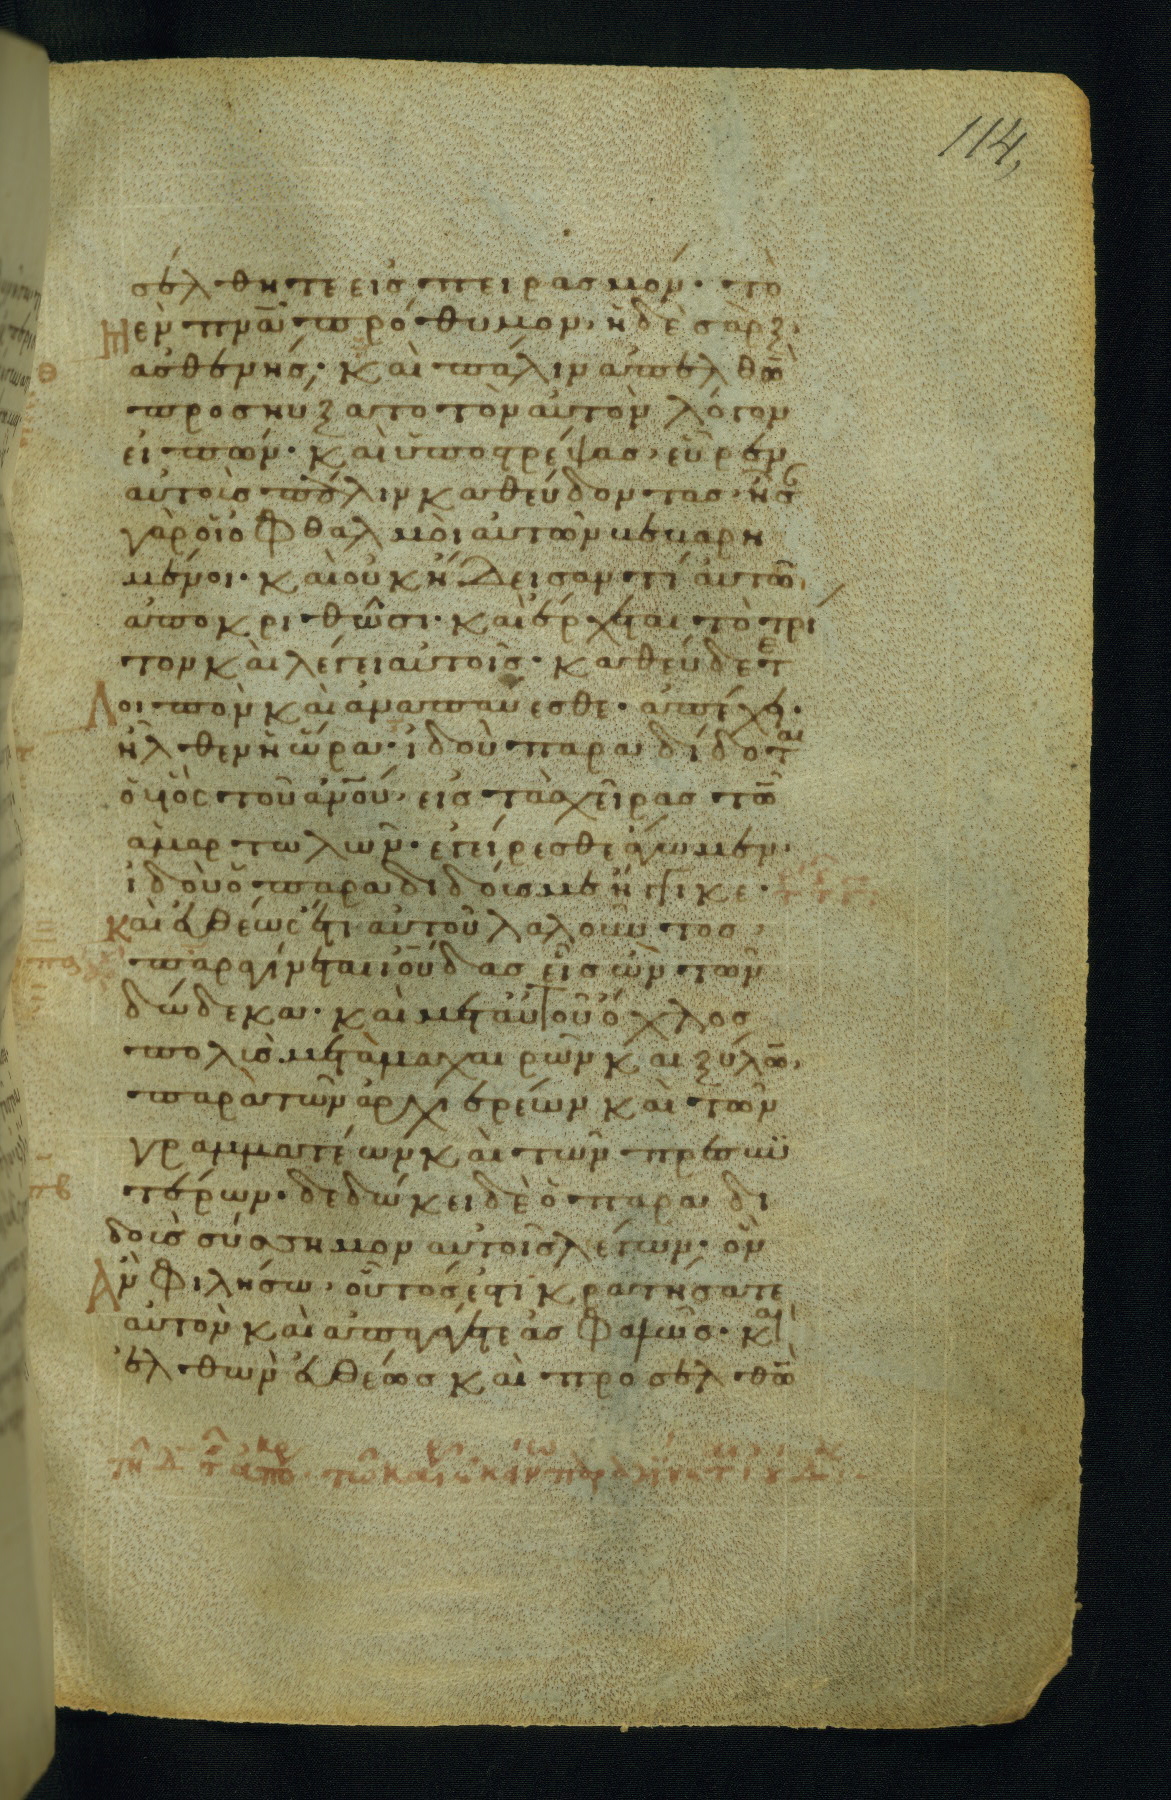 114,
σέλθητε εἰς πειρασμόν· τὸ
μὲν πνᾶ πρόθυμον, ἡ δὲ σὰρξ,
ἀσθενής· καὶ πάλιν ἀπελθὼ
προσηύξατο τὸν αὐτὸν λόγον
εἰπών· καὶ ὑποστρέψας, εὗρεν
αὐτοὺς πάλιν καθεύδοντας, ἦσ
γὰρ οἱ ὀφθαλμοὶ αὐτῶν βεβαρη
μένοι· καὶ οὐκ ἤδεισαν τί αὐτῶ
ἀποκριθῶσι· καὶ ἔρχεται τὸ τρί
τον καὶ λέγει αὐτοῖς· καθεύδετ
λοιπὸν καὶ ἀναπαύεσθε· ἀπέχει·
ἦλθεν ἡ ὥρα· ἰδοὺ παραδίδοται
ὁ υἱὸς τοῦ ἀνοῦ, εἰς τὰς χεῖρας τῶ
ἁμαρτωλῶν· ἐγείρεσθε ἄγωμεν·
ἰδοὺ ὁ παραδιδούς με ἤγγικε·
καὶ εὐθέως ἔτι αὐτοῦ λαλοῦντος,
παραγίνεται ἰούδας εἷς ὢν τῶν
δώδεκα· καὶ μετ αὐτοῦ ὄχλος
πολὺς μετὰ μαχαιρῶν καὶ ξύλω,
παρὰ τῶν ἀρχιερέων καὶ τῶν
γραμματέων καὶ τῶν πρεσβυ
τέρων· δεδώκει δὲ ὁ παραδι
δοὺς σύσσημον αὐτοῖς λέγων· ὃν
ἂν φιλήσω, οὗτός ἐστι κρατήσατε
αὐτὸν καὶ ἀπαγάγετε ἀσφαλῶς· καὶ
ἐλθὼν εὐθέως καὶ προσελθὼ